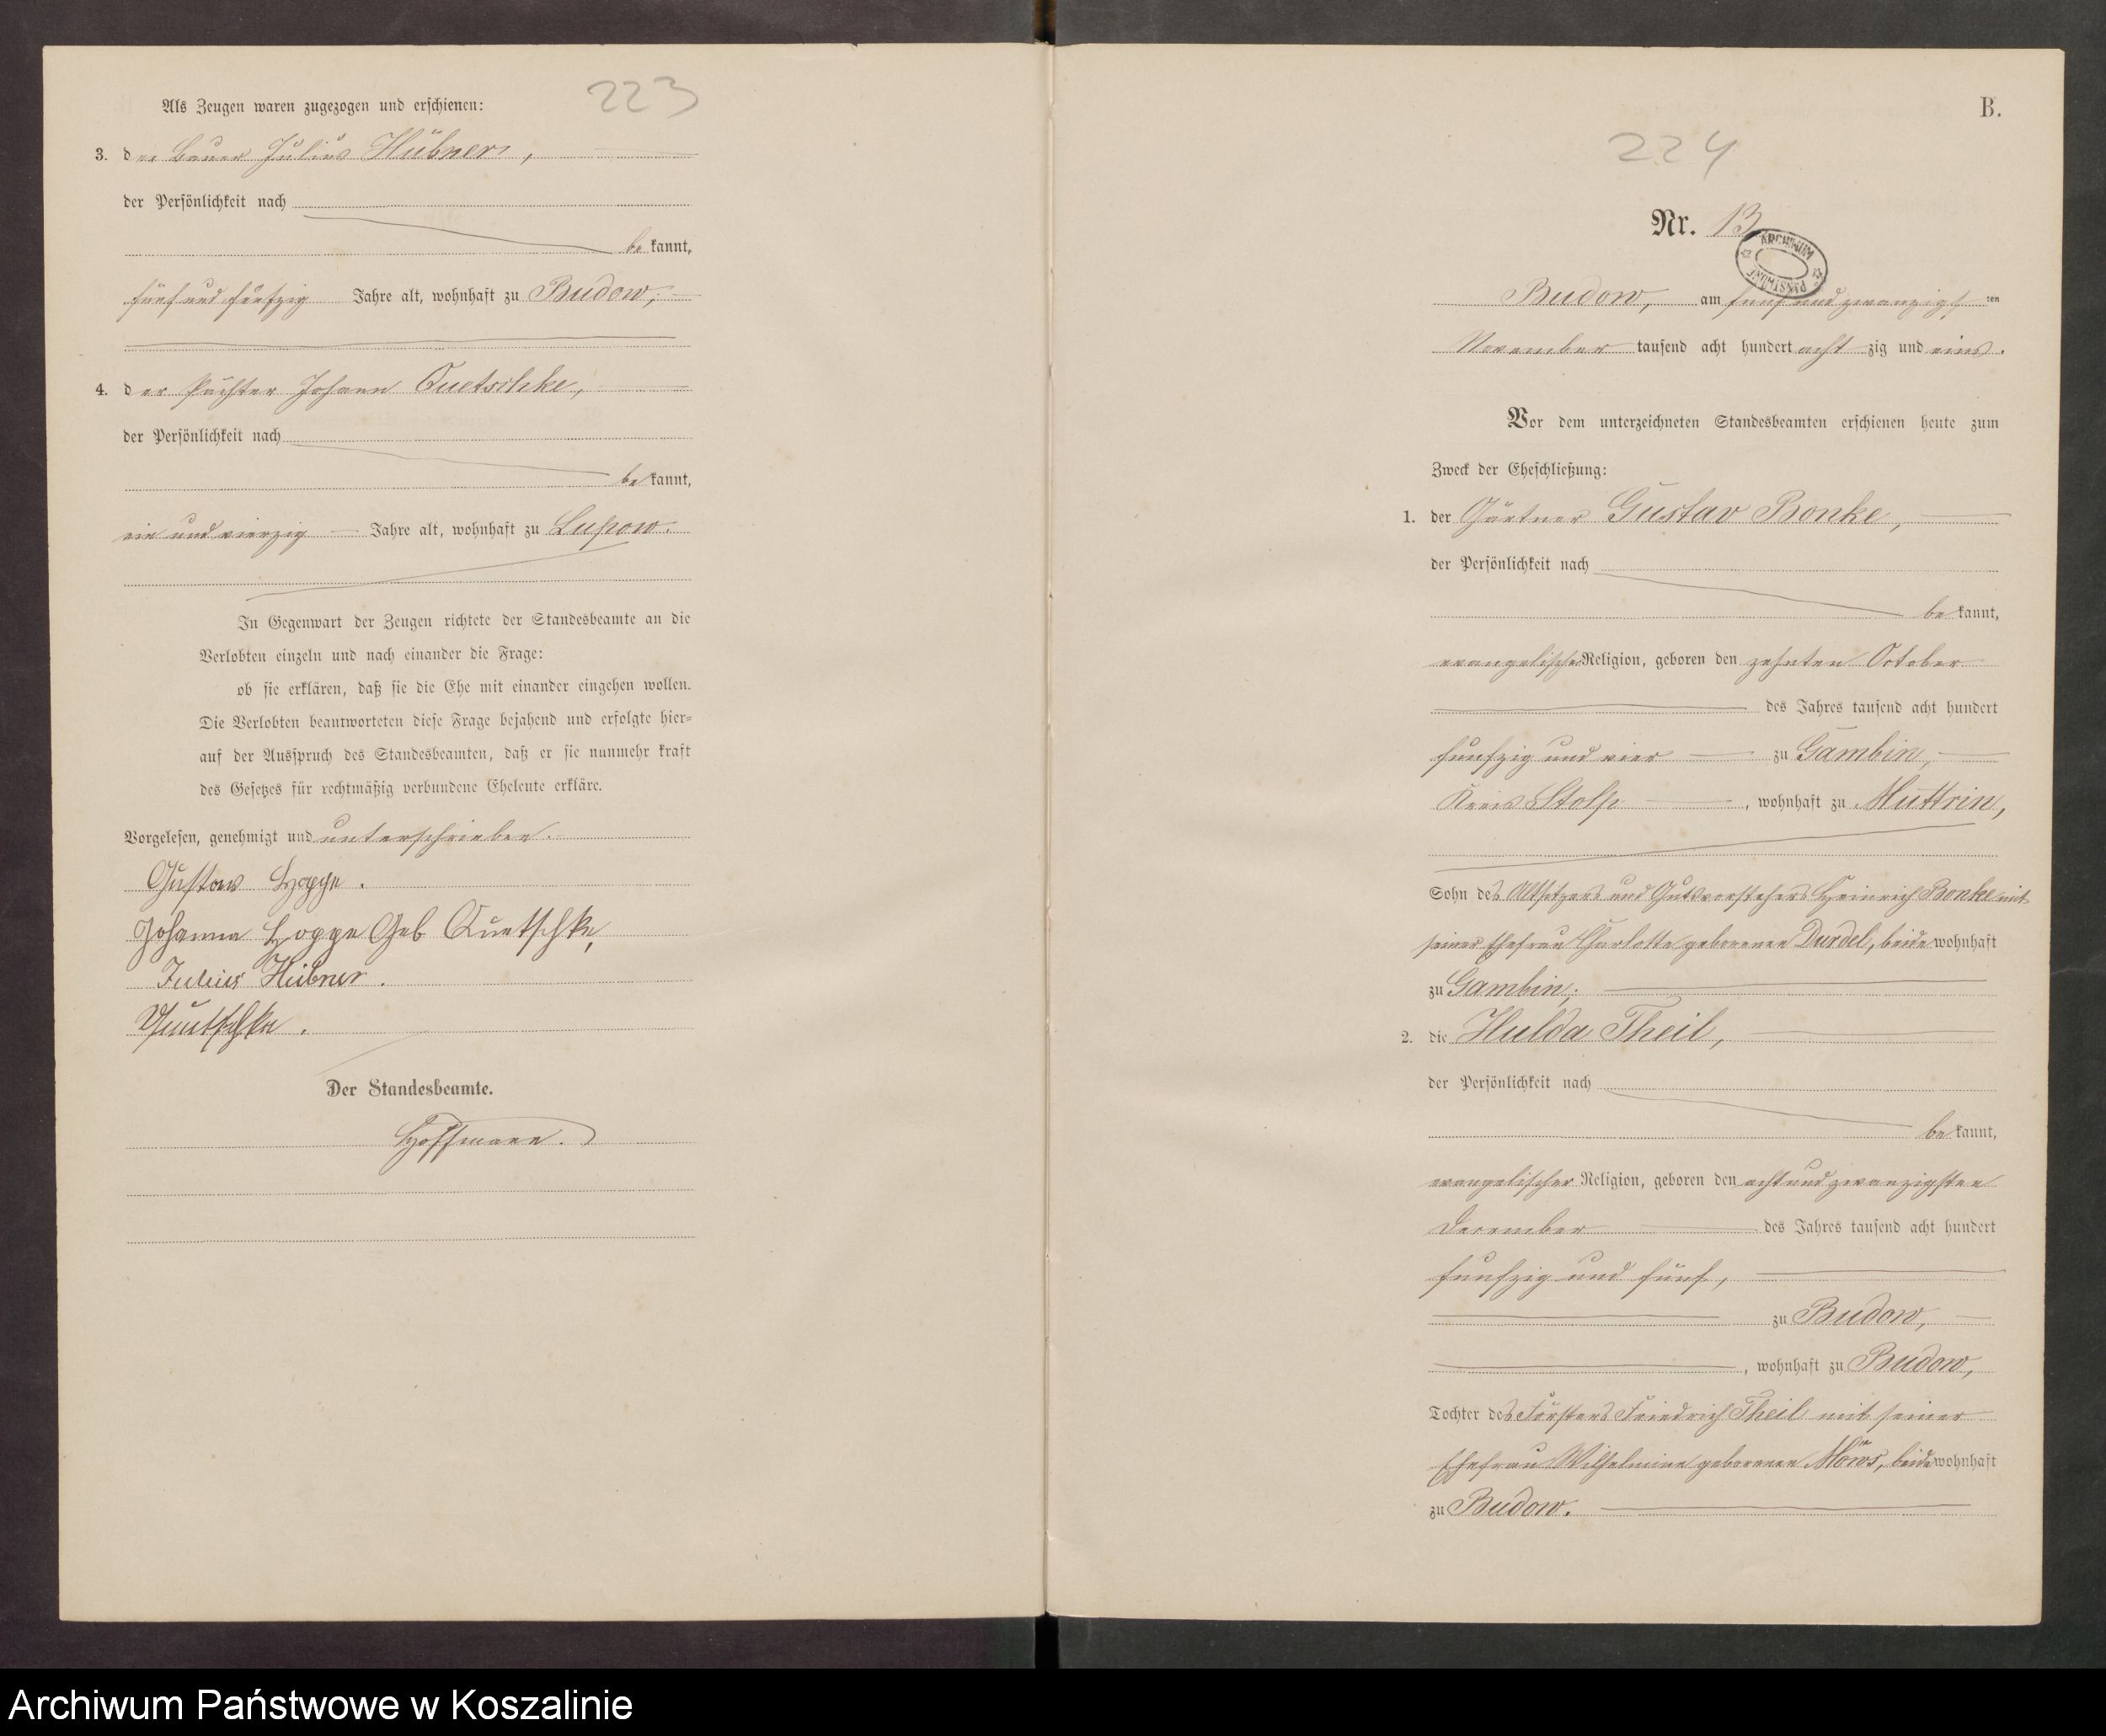 223
Als Zeugen waren zugezogen und erschienen:
3. der Bauer Julius Hübner,
der Persönlichkeit nach
bekannt,
fünf und fünfzig Jahre alt, wohnhaft zu Budow;
4. der Pächter Johann Quetschke,
der Persönlichkeit nach
bekannt,
ein und vierzig Jahre alt, wohnhaft zu Lupow.
In Gegenwart der Zeugen richtete der Standesbeamte an die
Verlobten einzeln und nach einander die Frage:
ob sie erklären, daß sie die Ehe mit einander eingehen wollen.
Die Verlobten beantworteten diese Frage bejahend und erfolgte hier=
auf der Ausspruch des Standesbeamten, daß er sie nunmehr kraft
des Gesetzes für rechtmäßig verbundene Eheleute erkläre.
Vorgelesen, genehmigt und unterschrieben.
Gustav Hoppe.
Johanna Hoppe Geb Quetschke,
Julius Hübner.
Quetschke.
Der Standesbeamte.
Hoffmann.
B.
224
Nr. 13
ARCHIWUM PAŃSTWOWE
Budow, am fünf und zwanzigsten
November tausend acht hundert achtzig und eins.
Vor dem unterzeichneten Standesbeamten erschienen heute zum
Zweck der Eheschließung:
1. der Gärtner Gustav Bonke,
der Persönlichkeit nach
bekannt,
evangelischer Religion, geboren den zehnten October
des Jahres tausend acht hundert
fünfzig und vier zu Gambin,
Kreis Stolp, wohnhaft zu Muttrin,
Sohn des Altsitzers und Gutsvorstehers Heinrich Bonke mit
seiner Ehefrau Charlotte geborenen Durdel, beide wohnhaft
zu Gambin;
2. die Hulda Theil,
der Persönlichkeit nach
bekannt,
evangelischer Religion, geboren den acht und zwanzigsten
December des Jahres tausend acht hundert
fünfzig und fünf,
zu Budow,
, wohnhaft zu Budow,
Tochter des Försters Friedrich Theil mit seiner
Ehefrau Wilhelmine geborenen Möws, beide wohnhaft
zu Budow.
Archiwum Państwowe w Koszalinie